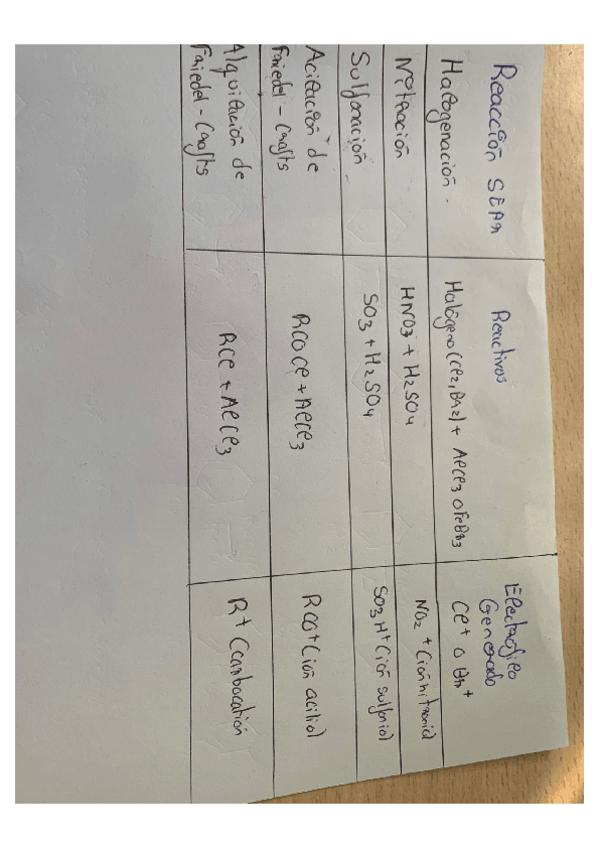 Reacción SEAr
Reactivos
Electrófilo
Generado
Halogenación
Halógeno (Cl2, Br2) + AlCl3 o FeBr3
Cl+ o Br+
Nitración
HNO3 + H2SO4
NO2 + (ión nitronio)
Sulfonación
SO3 + H2SO4
SO3H+ (ión sulfonio)
Acilación de
Friedel - Crafts
RCOCl + AlCl3
RCO+ (ión acilio)
Alquilación de
Friedel - Crafts
RCl + AlCl3
R+ (carbocatión)